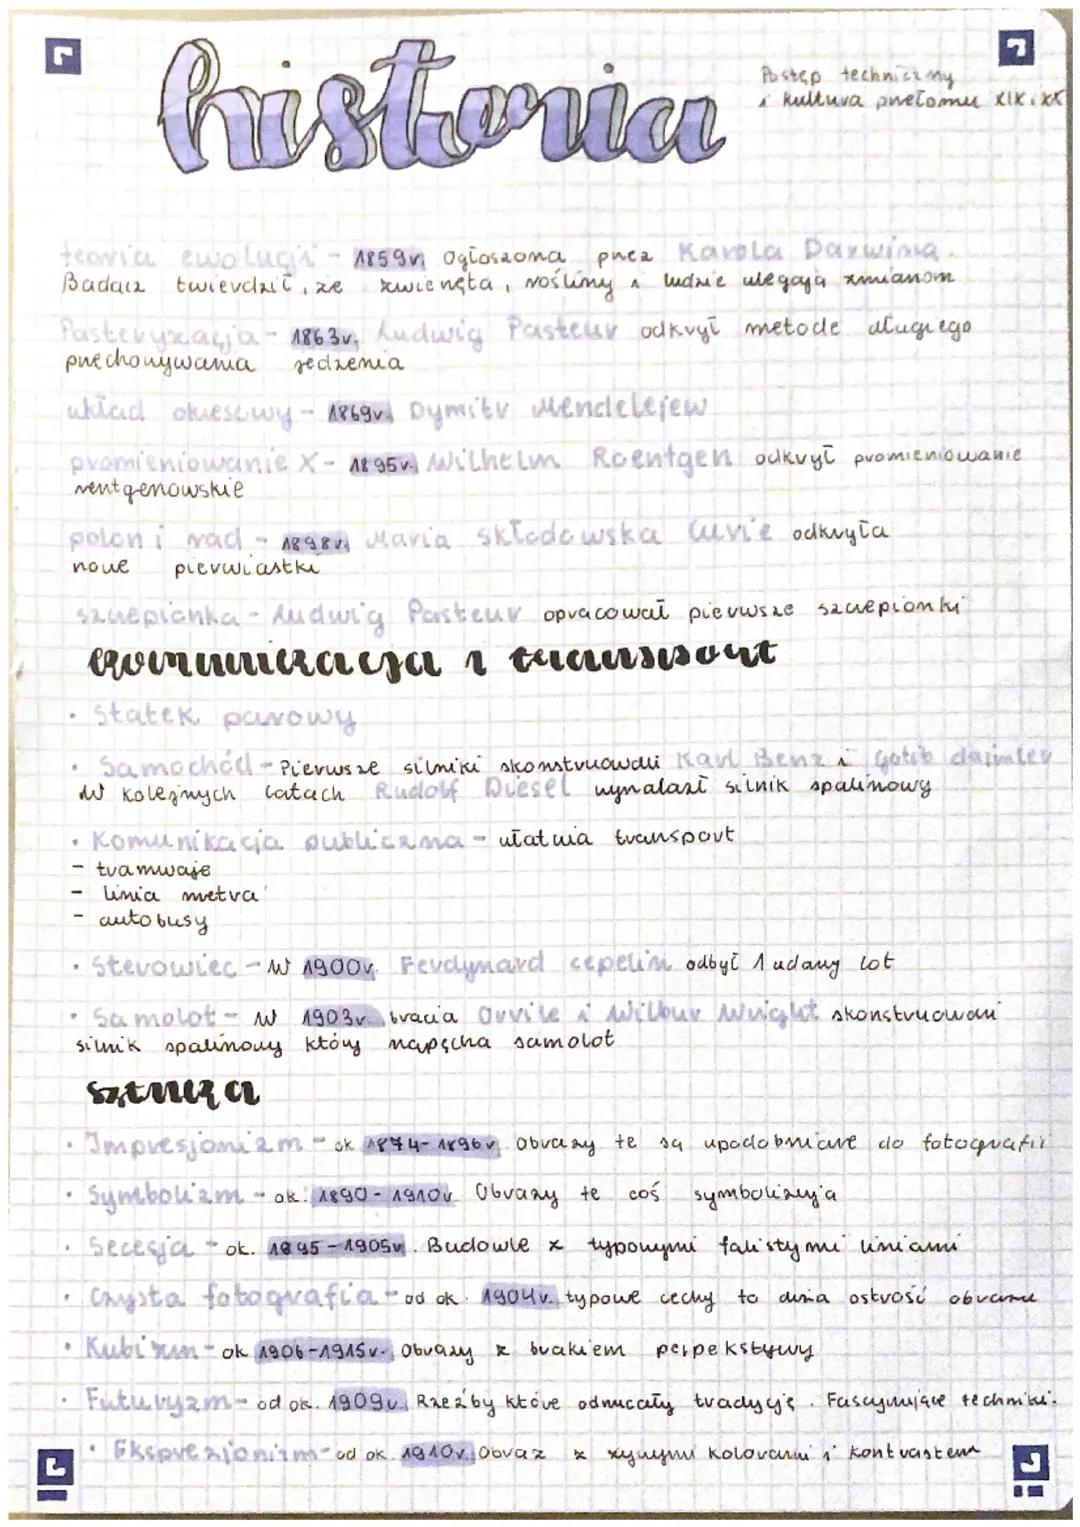 historia
Postęp techniczny
i kultura przełomu XIX i XX
teoria ewolucji - 1859r. ogłoszona przez Karola Darwina.
Badacz twierdził, że zwierzęta, rośliny i ludzie ulegają zmianom
Pasteryzacja - 1863r. Ludwig Pasteur odkrył metode długiego
przechowywania jedzenia
układ okresowy - 1869r. Dymitr Mendelejew
promieniowanie X - 1895r. Wilhelm Roentgen odkrył promieniowanie
rentgenowskie
polon i rad - 1898r. Maria Skłodowska Curie odkryła
nowe pierwiastki
szczepionka - Ludwig Pasteur opracował pierwsze szczepionki
komunikacja i transport
• Statek parowy
• Samochód - Pierwsze silniki skonstruowali Karl Benz i Gotib daimler
W kolejnych latach Rudolf Diesel wynalazł silnik spalinowy
• Komunikacja publiczna - ułatwia transport
- tramwaje
- linia metra
- autobusy
• Sterowiec - W 1900r. Ferdynard cepelin odbył 1 udany lot
• Samolot - W 1903r. bracia Orvile i Wilbur Wright skonstruowali
silnik spalinowy który napęcha samolot
sztuka
• Impresjonizm - ok 1874-1896r. Obrazy te są upodobniane do fotografii
• Symbolizm - ok. 1890-1910r Obrazy te coś symbolizują
• Secesja - ok. 1895-1905r. Budowle z typowymi falistymi liniami
• Czysta fotografia - od ok. 1904r. typowe cechy to duża ostrość obrazu
• Kubizm - ok 1906-1915r. Obrazy z brakiem perpekstywy
• Futuryzm - od ok. 1909r. Rzeźby które odrzucały tradycję. Fascynujące techniki.
• Eksprezjonizm - od ok. 1910r. Obraz z żywymi kolorami i kontrastem